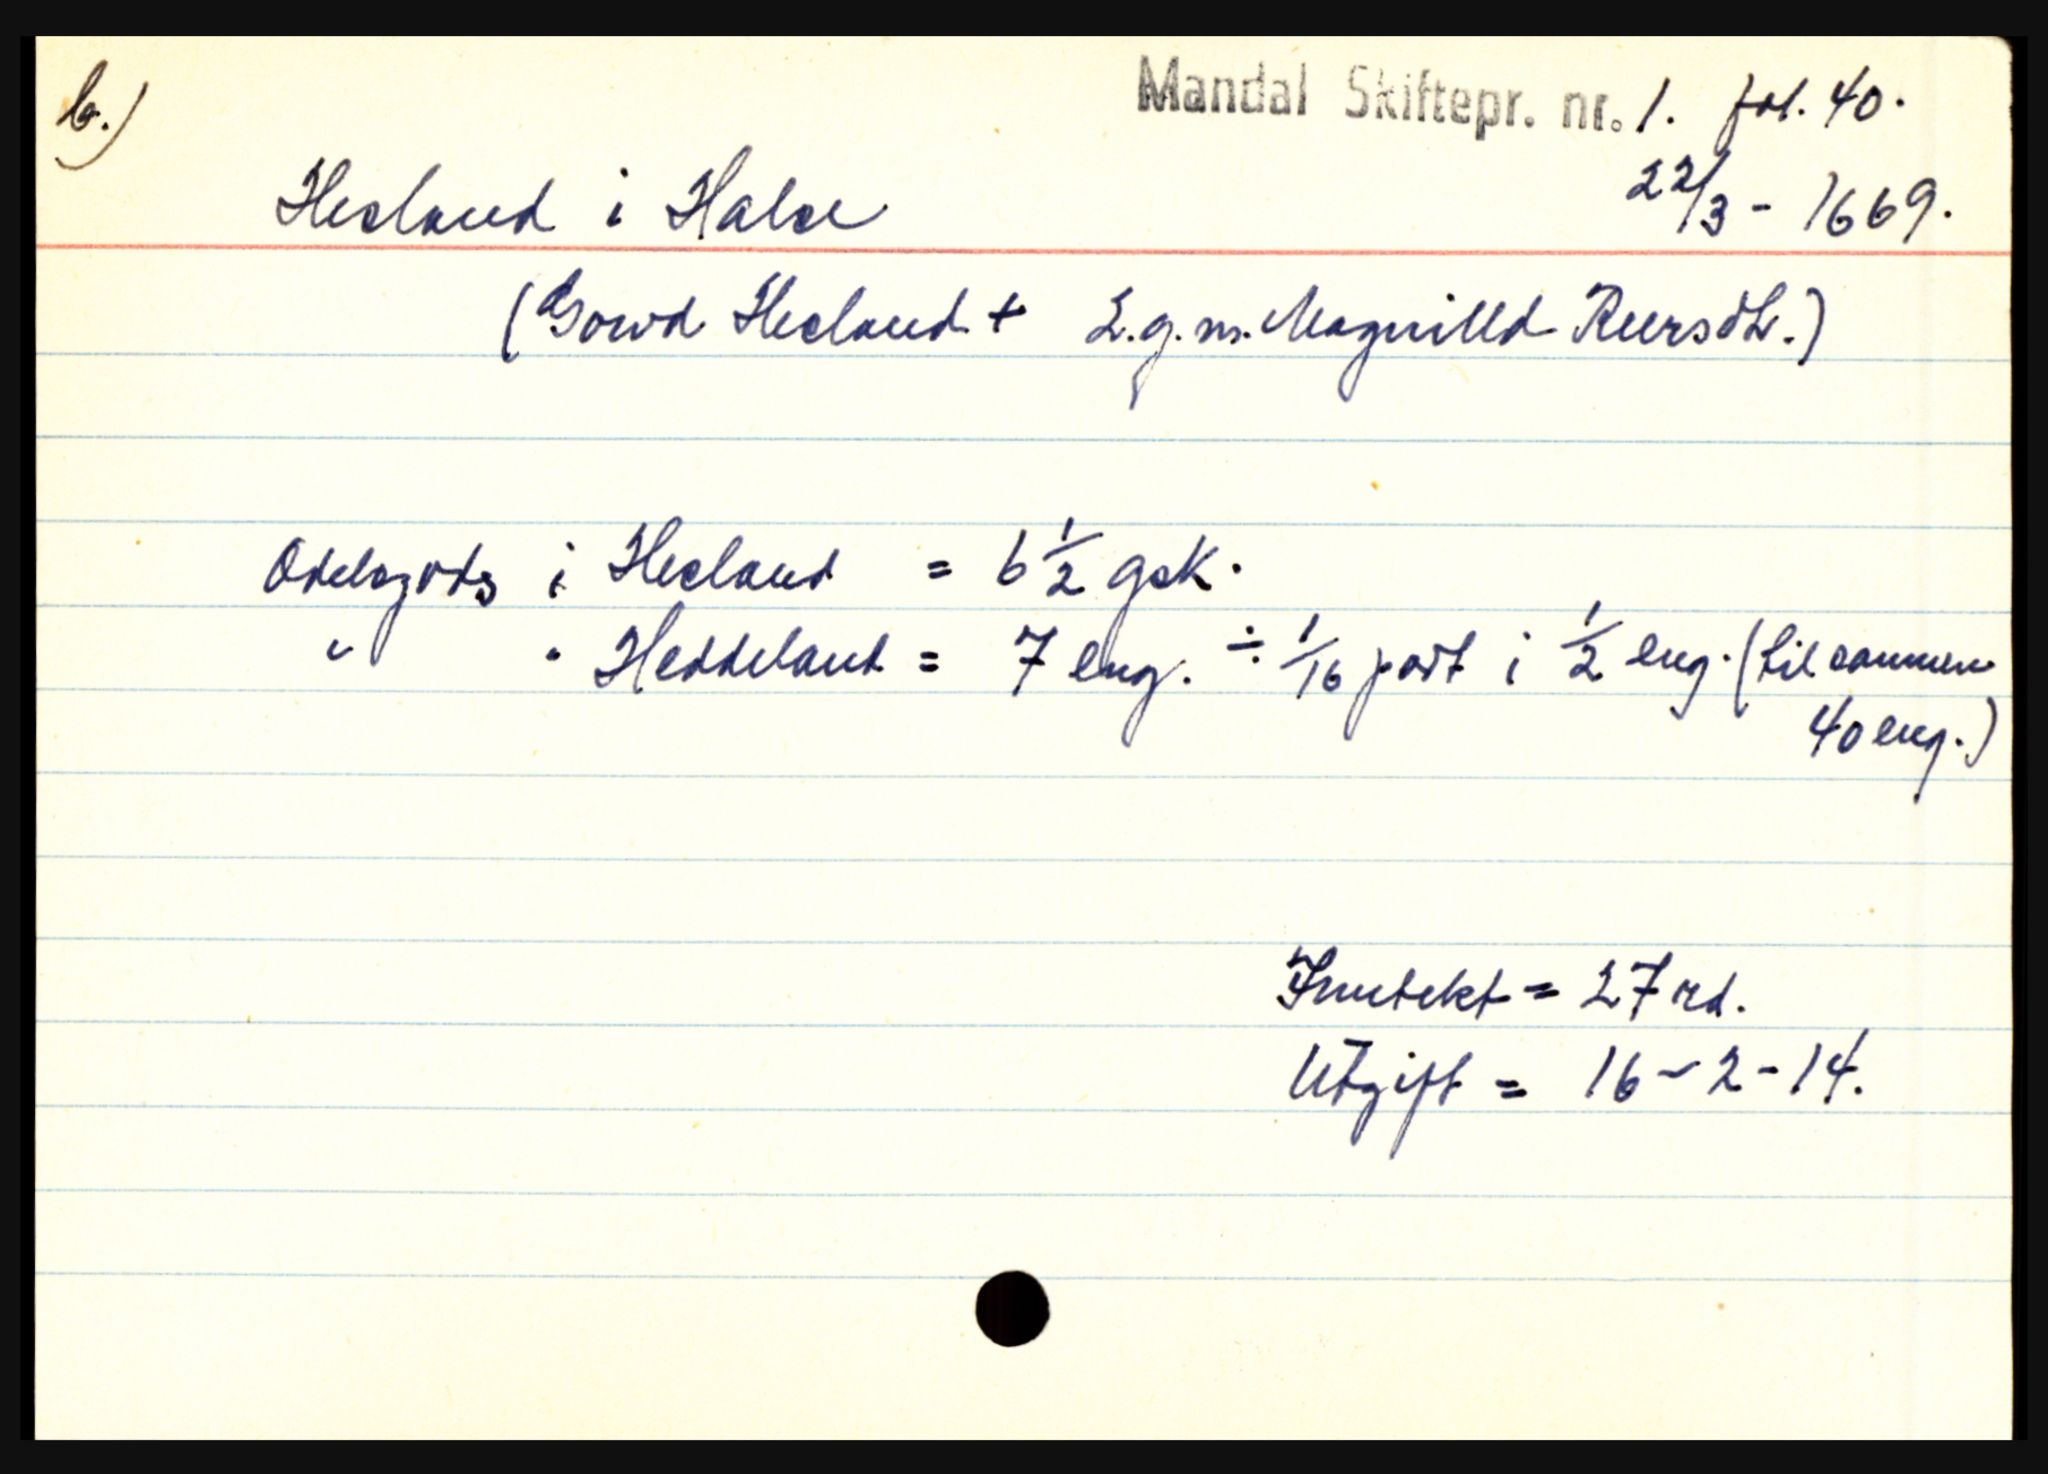 b.)
Mandal Skiftepr. nr. 1. fol. 40.
Hesland i Halse
22/3 - 1669.
(Gowd Hesland + E.g.m. Magnilld Reersdtr.)
Odelsgods i Hesland = 6 1/2 gsk.
" " Heddeland = 7 eng. ÷ 1/16 part i 1/2 eng. (tilsammen
40 eng.)
Inntekt = 27 rd.
Utgift = 16 - 2 - 14.